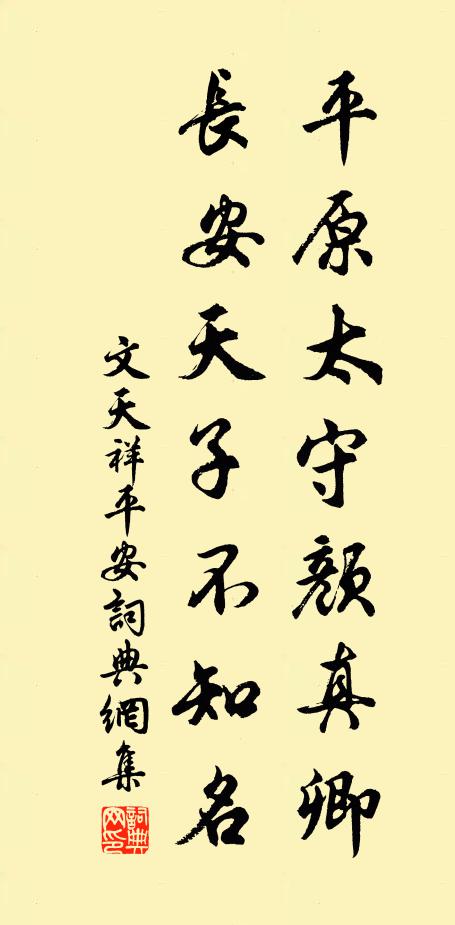 平原太守顏真卿
長安天子不知名
文天祥平安詞典網集
詞典網印